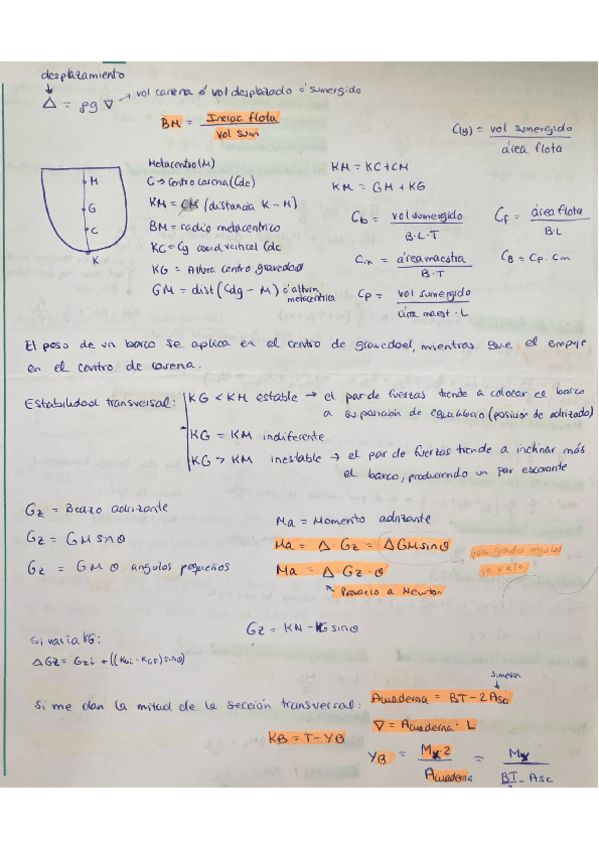 desplazamiento
Δ = ρg ∇ → vol carena ó vol desplazado ó sumergido
BM = Inercia flota / vol sum
C(y) = vol sumergido / área flota
Metacentro (M)
C → Centro carena (Cdc)
KM = CM (distancia K - M)
BM = radio metacentrico
KC = Cg coord vertical Cdc
KG = Altura centro gravedad
GM = dist (Cdg - M) ó altura metacentrica
M
G
C
K
KM = KC + CM
KM = GM + KG
Cb = vol sumergido / B·L·T
Cf = área flota / B·L
Cm = área maestra / B·T
CB = Cp · Cm
Cp = vol sumergido / área maest · L
El peso de un barco se aplica en el centro de gravedad, mientras que el empuje
en el centro de carena.
Estabilidad transversal:
KG < KM estable → el par de fuerzas tiende a colocar el barco
a su posición de equilibrio (posición de adrizado)
KG = KM indiferente
KG > KM inestable → el par de fuerzas tiende a inclinar más
el barco, produciendo un par escorante
GZ = Brazo adrizante
GZ = GM sin θ
GZ = GM θ angulos pequeños
Ma = Momento adrizante
Ma = Δ · GZ = ΔGM sin θ
Ma = Δ · GZ · θ
Pasarlo a Newton
para grandes angulos
GZ = KN - KG sin θ
Si varia KG:
ΔGZ = GZi + ((KGi - KGF) sin θ)
Si me dan la mitad de la sección transversal:
Simpson
Acuaderna = BT - 2Asc
∇ = Acuaderna · L
KB = T - YB
YB = Mx 2 / Acuaderna = Mx / BT/2 - Asc